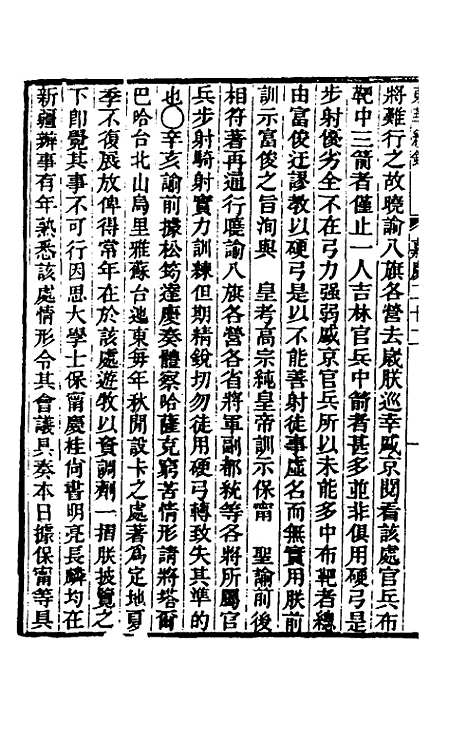 東華續錄 嘉慶二十二
將難行之故曉諭八旗各營去歲朕巡幸盛京閱看該處官兵布
靶中三箭者僅止一人吉林官兵中箭者甚多並非俱用硬弓是
步射優劣全不在弓力强弱盛京官兵所以未能多中布靶者總
由富俊迂謬教以硬弓是以不能善射徒事虛名而無實用朕前
訓示富俊之旨洵與 皇考高宗純皇帝訓示保甯 聖諭前後
相符著再通行曉諭八旗各營各省將軍副都統等各將所屬官
兵步射騎射實力訓練但期精銳切勿徒用硬弓轉致失其準的
也〇辛亥諭前據松筠達慶奏體察哈薩克窮苦情形請將塔爾
巴哈台北山烏里雅蘇台迤東每年秋間設卡之處著爲定地夏
季不復展放俾得常年在於該處遊牧以資調劑一摺朕披覽之
下卽覺其事不可行因思大學士保甯慶桂尙書明亮長麟均在
新疆辦事有年熟悉該處情形令其會議具奏本日據保甯等具